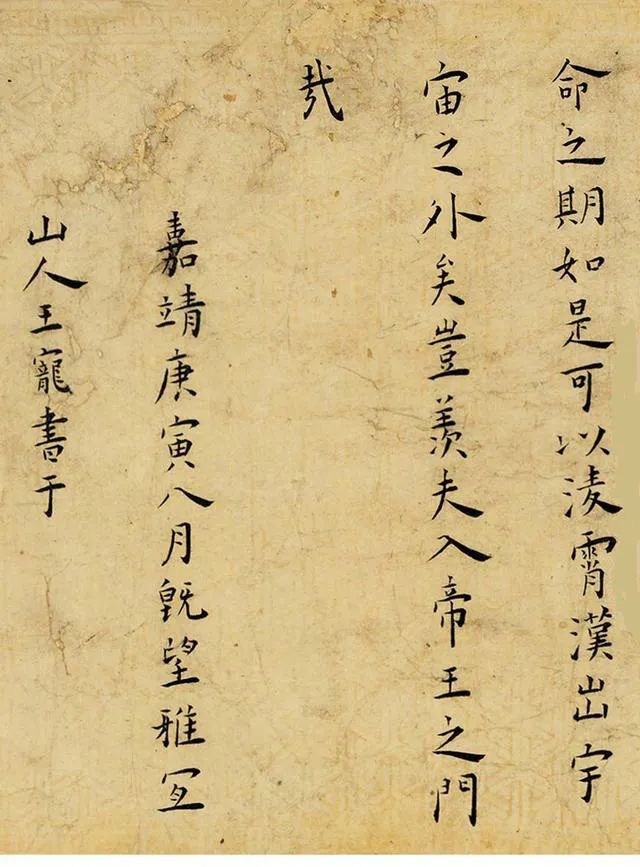 命之期如是可以淩霄漢出宇
宙之外矣豈羨夫入帝王之門
哉
嘉靖庚寅八月既望雅宜
山人王寵書于